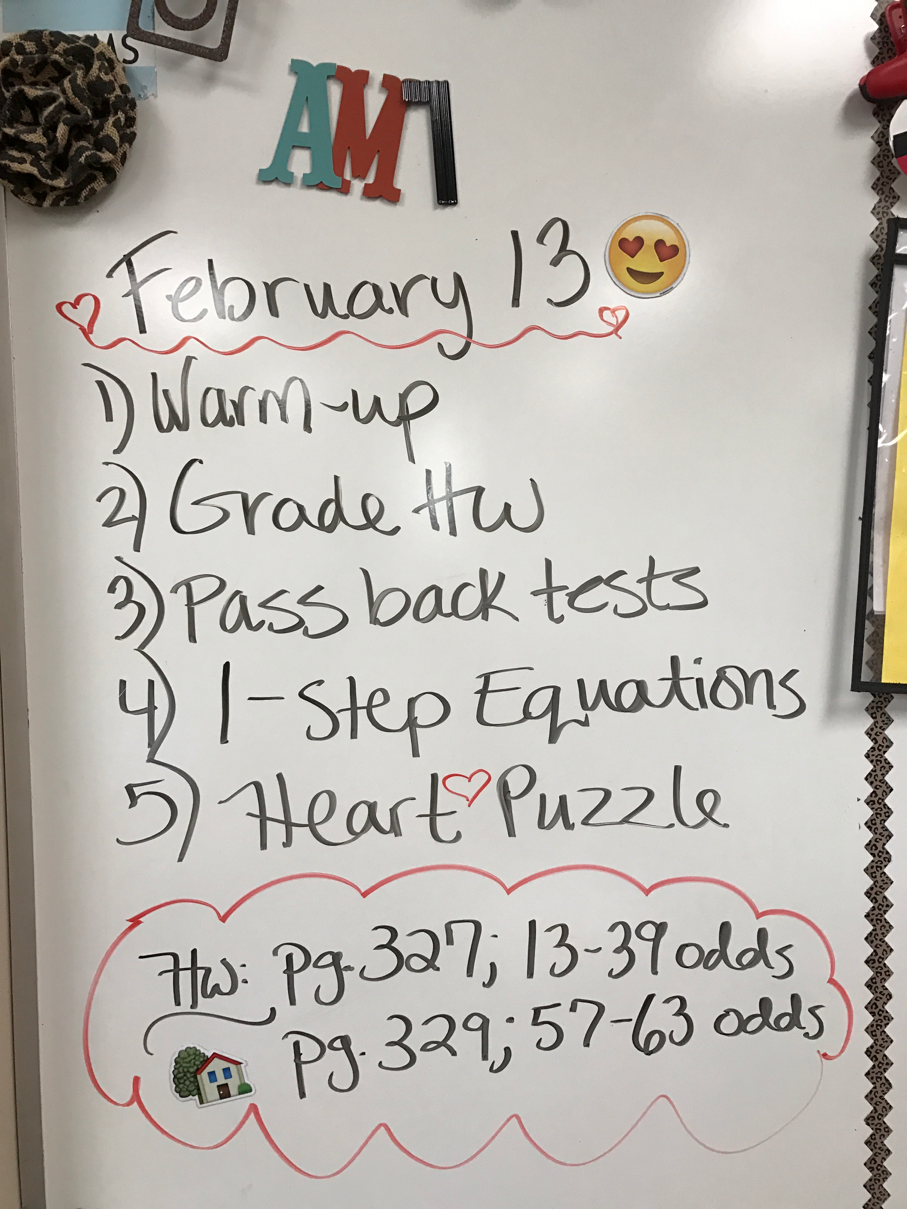 AS
AM7
February 13
1) Warm-up
2) Grade Hw
3) Pass back tests
4) 1-Step Equations
5) Heart Puzzle
Hw: pg. 327; 13-39 odds
pg. 329; 57-63 odds